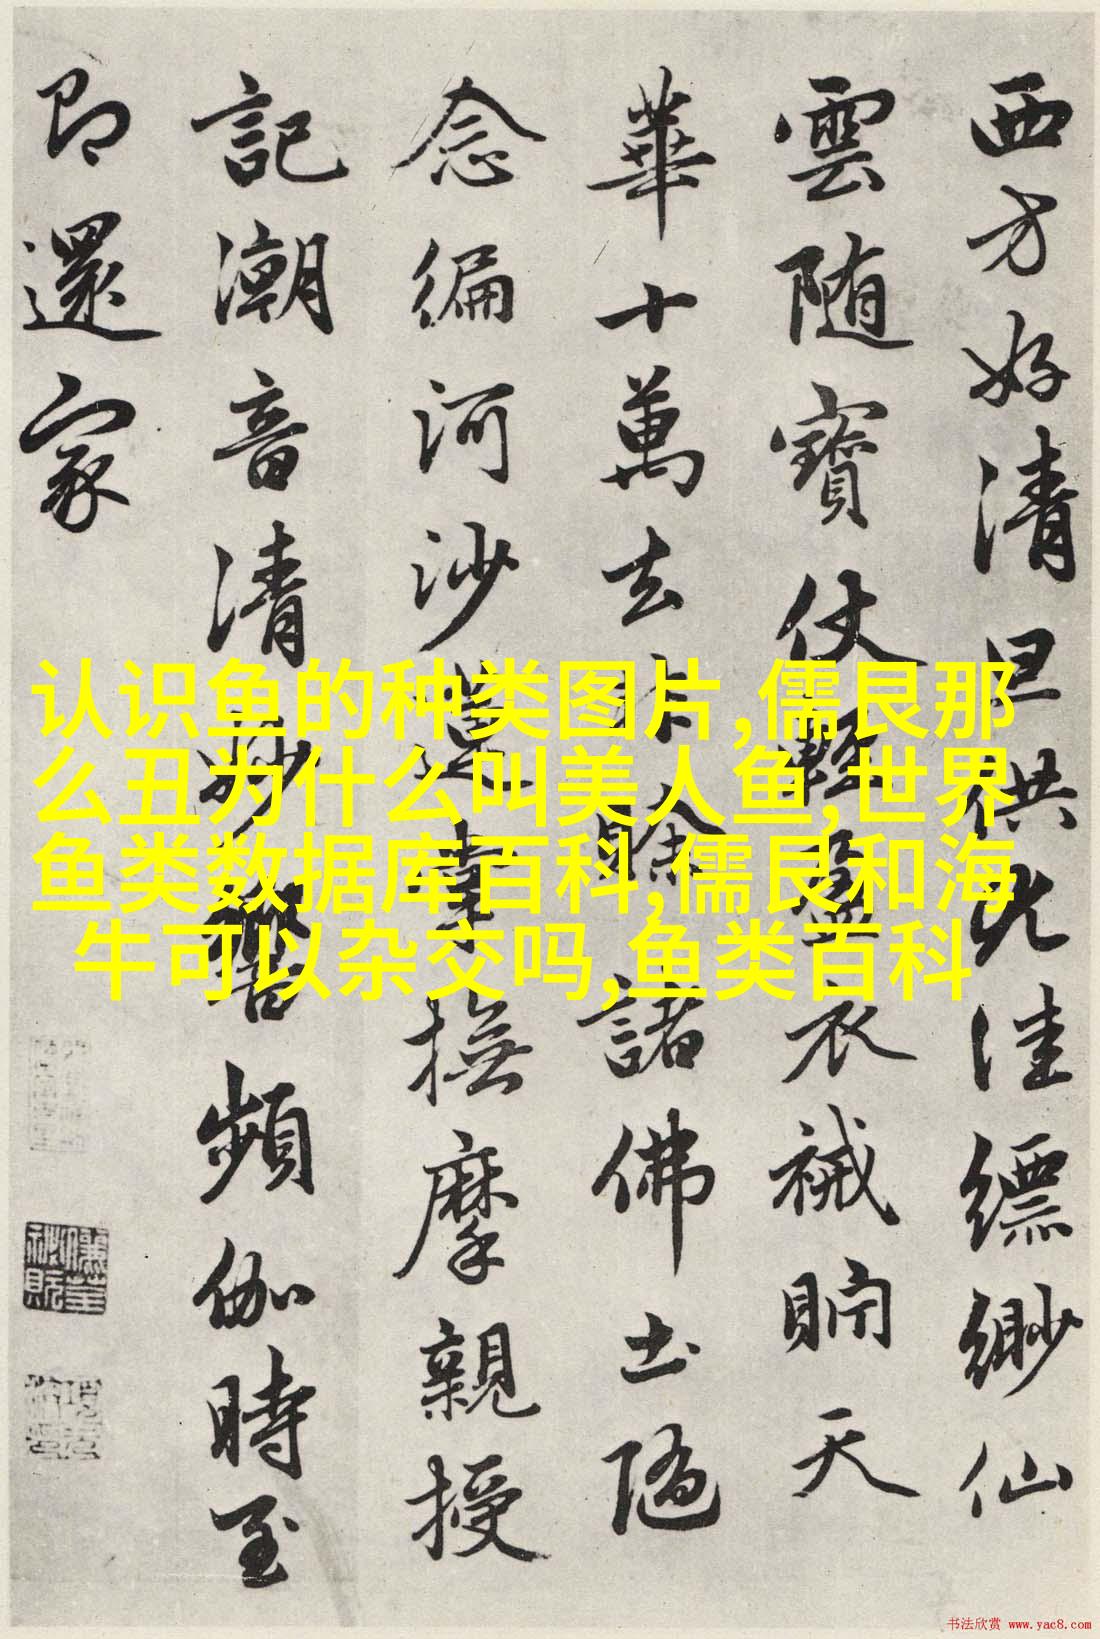 西方好清旦供尤佳縹緲仙
雲随寶仗輕盈衣裓貯天
華十萬去非賒諸佛土隨
念徧河沙蓮掌撫摩親授
記潮音清妙響頻伽時至
即還家
认识鱼的种类图片,儒艮那
么丑为什么叫美人鱼,世界
鱼类数据库百科,儒艮和海
牛可以杂交吗,鱼类百科
书法欣赏 www.yac8.com